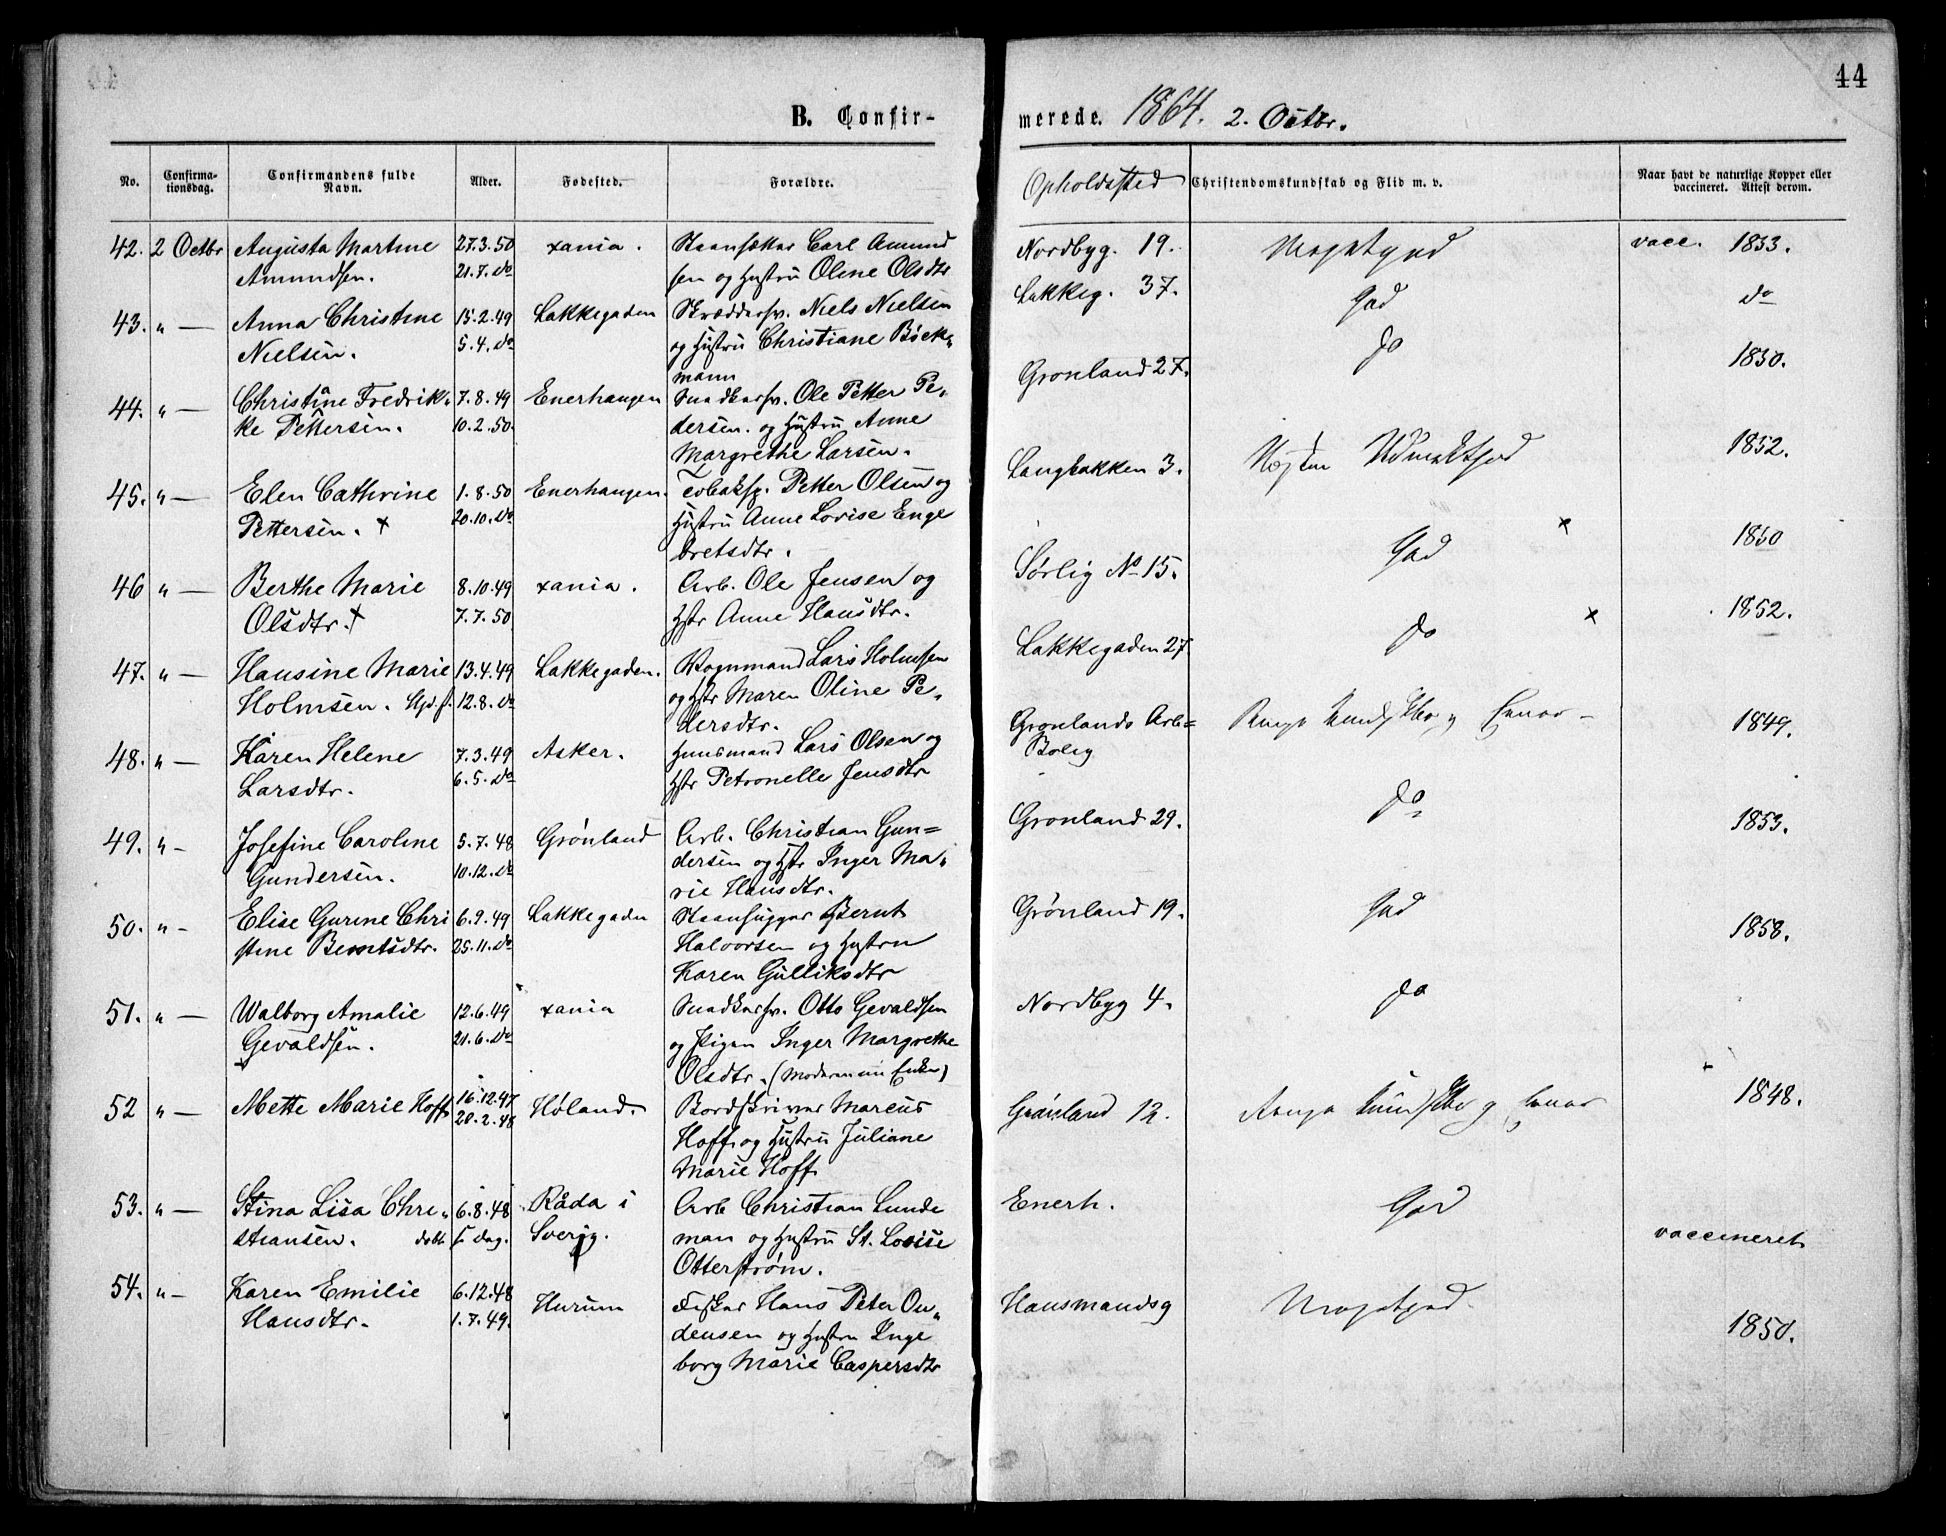 44
B. Confirmerede. 1864. 2. Octbr.
No. Confirmationsdag. Confirmandens fulde Navn. Alder. Fødested. Forældre. Opholdssted Christendomskundskab og Flid m. v. Naar havt de naturlige Kopper eller vaccineret. Attest derom.
42. 2 Octbr Augusta Martine 27.3.50 xania. Carl Amund Nordbyg. 19. Meget god vacc. 1853.
Amundsen. 21.7. do sen og Hustru Oline Olsdtr
43. " — Anna Christine 15.2.49 Lakkegaden Skræddersv. Niels Nielsen Lakkeg. 37. God do
Nielsen. 5.4. do og Hustru Christiane Böck-
mann
44. " — Christine Fredrik- 7.8.49 Enerhaugen Snedkersv. Ole Petter Pe- Grønland 27. do 1850.
ke Pettersen. 10.2.50. dersen. og Hustru Anne
Margrethe Larsen.
45. " — Elen Cathrine 1.8.50 Enerhaugen. Tobaksp. Petter Olsen og Langbakken 3. 1852.
Pettersen. x 20.10. do Hustru Anne Lovise Enge
bretsdtr.
46 " — Berthe Marie 8.10.49 xania. Arb. Ole Jensen og Sørlig No 15. God x 1850
Olsdtr. x 7.7.50. Hstr Anne Hansdtr.
47. " — Hansine Marie 13.4.49 Lakkegaden. Vognmand Lars Holmsen Lakkegaden 27 do x 1852.
Holmsen. Hjd. 12.8. do og Hstr Maren Oline Pe-
dersdtr.
48. " — Karen Helene 7.3.49 Asker. Huusmand Lars Olsen og Grønlands Arb= 1849.
Larsdtr. 6.5. do Hstr Petronelle Jensdtr Bolig
49. " - Josefine Caroline 5.7.48 Grönland Arb. Christian Gun= Grønland 29. do 1853.
Gundersen. 10.12. do dersen og Hstr Inger Ma-
rie Hansdtr.
50. " - Elise Gurine Chri 6.9.49 Lakkegaden Bernt Grønland 19. God 1858.
stine Berntsdtr. 25.11. do Halvorsen og Hustru
Karen Gulliksdtr
51. " — Walborg Amalie 12.6.49 xania Snedkersv. Otto Gevaldsen Nordbyg 4. do
Gevaldsen. 21.6. do og Pigen Inger Margrethe
Olsdtr. (Moderen nu Enke)
52 " — Mette Marie Hoff 16.12.47 Høland. Bordskriver Marcus Grønland 12. 1848.
20.2.48 Hoff og Hustru Juliane
Marie Hoff
53. " — Stina Lisa Chri- 6.8.48 Råda i Arb Christian Lunde Enerh. God vaccineret
stiansen. døbt s. dag. Sverig. man og Hustru St. Lovise
Otterström.
54. " - Karen Emilie 6.12.48 Hurum Fisker Hans Peter On- Hausmandsg Meget god 1850.
Hansdtr. 1.7.49. densen og Hustru Inge
borg Marie Caspersdtr